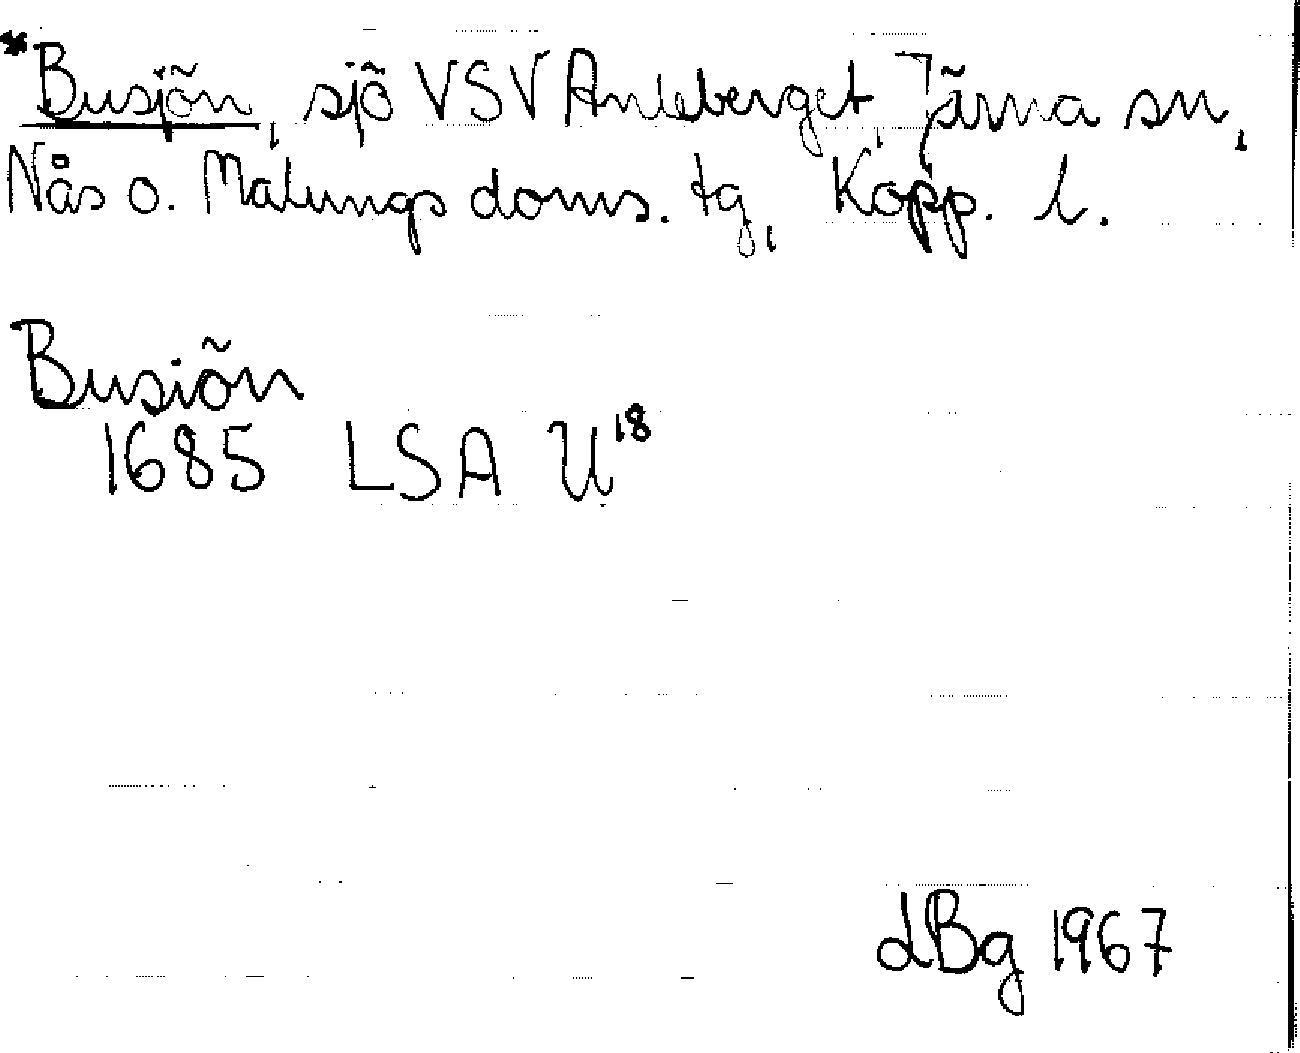 *Busjön, sjö VSV Anleberget, Järna sn,
Nås o. Malungs doms. tg, Kopp. l.
Busiön
1685 LSA U¹⁸
dBg 1967